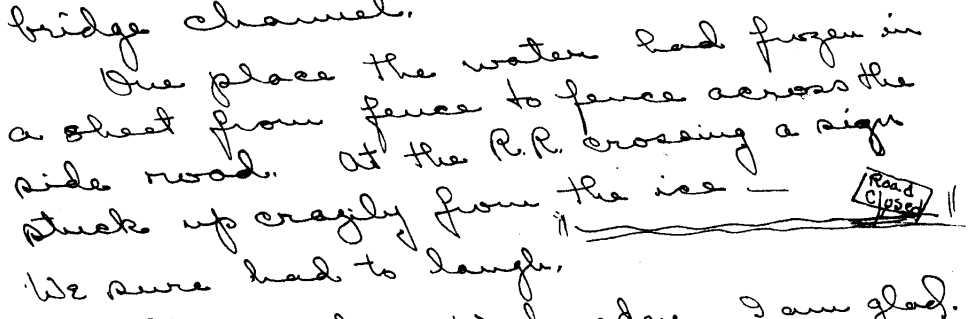 bridge channel.
One place the water had frozen in
a sheet from fence to fence across the
side road. At the R.R. crossing a sign
stuck up crazily from the ice —
Road
Closed
We sure had to laugh.
I am glad.